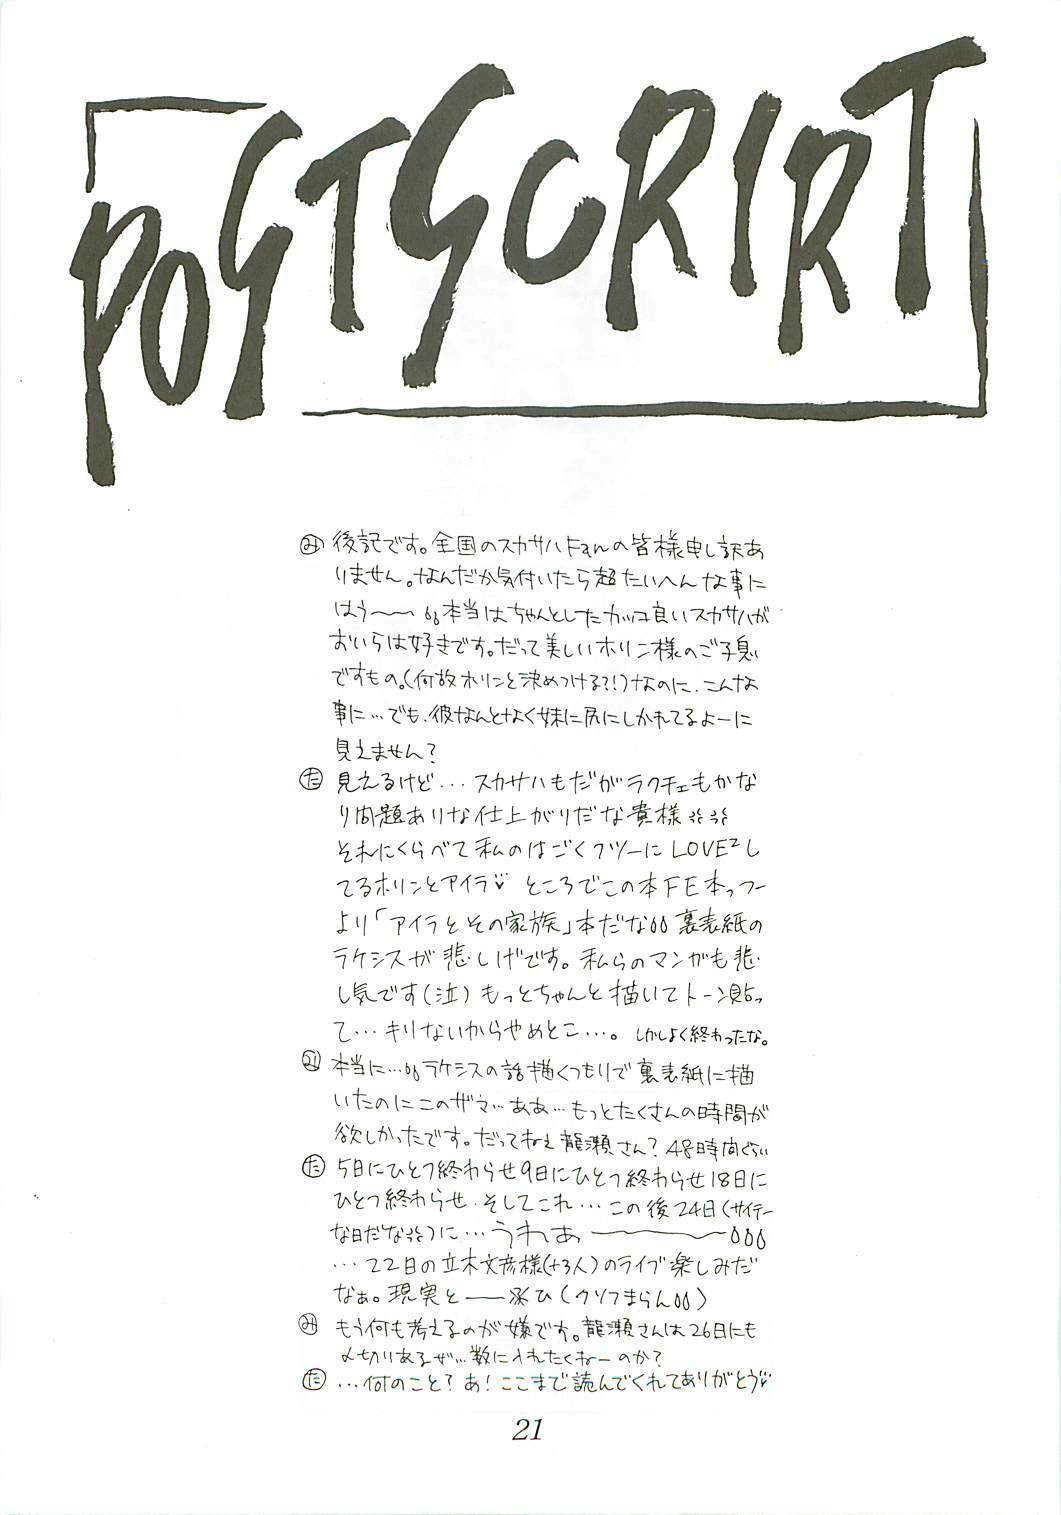 POSTSCRIPT
み 後記です。全国のスカサハFanの皆様申し訳あ
りません。なんだか気付いたら超たいへんな事に
はう〜〜 本当はちゃんとしたカッコ良いスカサハが
おいらは好きです。だって美しいホリン様のご子息
ですもの。(何故ホリンと決めつける?!)なのに、こんな
事に…でも、彼なんとなく妹に尻にしかれてるよーに
見えません?
た 見えるけど・・・スカサハもだがラクチェもかな
り問題ありな仕上がりだな貴様
それにくらべて私のはごくフツーにLOVE²し
てるホリンとアイラ♡ ところでこの本FE本っつー
より「アイラとその家族」本だな 裏表紙の
ラケシスが悲しげです。私らのマンガも悲
し気です(泣)もっとちゃんと描いてトーン貼っ
て…キリないからやめとこ…。しかしよく終わったな。
み 本当に… ラケシスの話描くつもりで裏表紙に描
いたのにこのザマ…ああ…もっとたくさんの時間が
欲しかったです。だってねぇ龍瀬さん?48時間ぐらい
た 5日にひとつ終わらせ9日にひとつ終わらせ18日に
ひとつ終わらせ、そしてこれ…この後24日(サイテー
な日だな)に…うわぁ〜〜
…22日の立木文彦様(+3人)のライブ楽しみだ
なぁ。現実と——ひ(クソつまらん)
み もう何も考えるのが嫌です。龍瀬さんは26日にも
〆切りあるぜ…数に入れたくねーのか?
た …何のこと?あ!ここまで読んでくれてありがとう♡
21